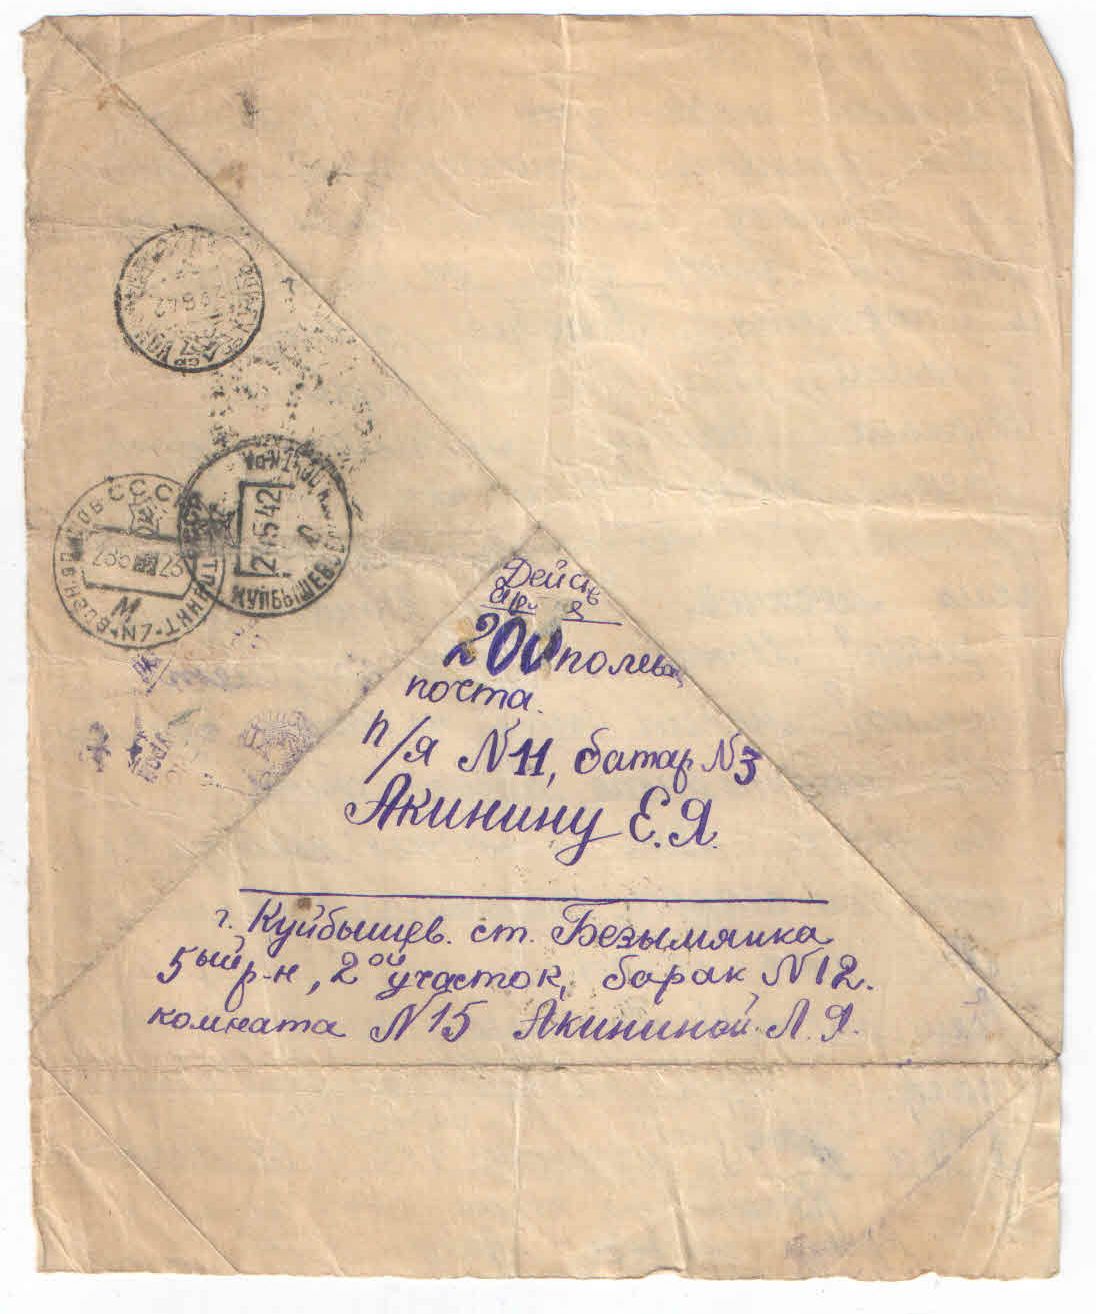 Действ
200 полевая
почта.
п/я N 11, батар N3
Акинину Е.Я.
г. Куйбышев. ст. Безымянка
5ый р-н, 2ой участок, барак N12.
комната N15 Акининой Л.Я.
СССР
КУЙБЫШЕВ
21 5 42